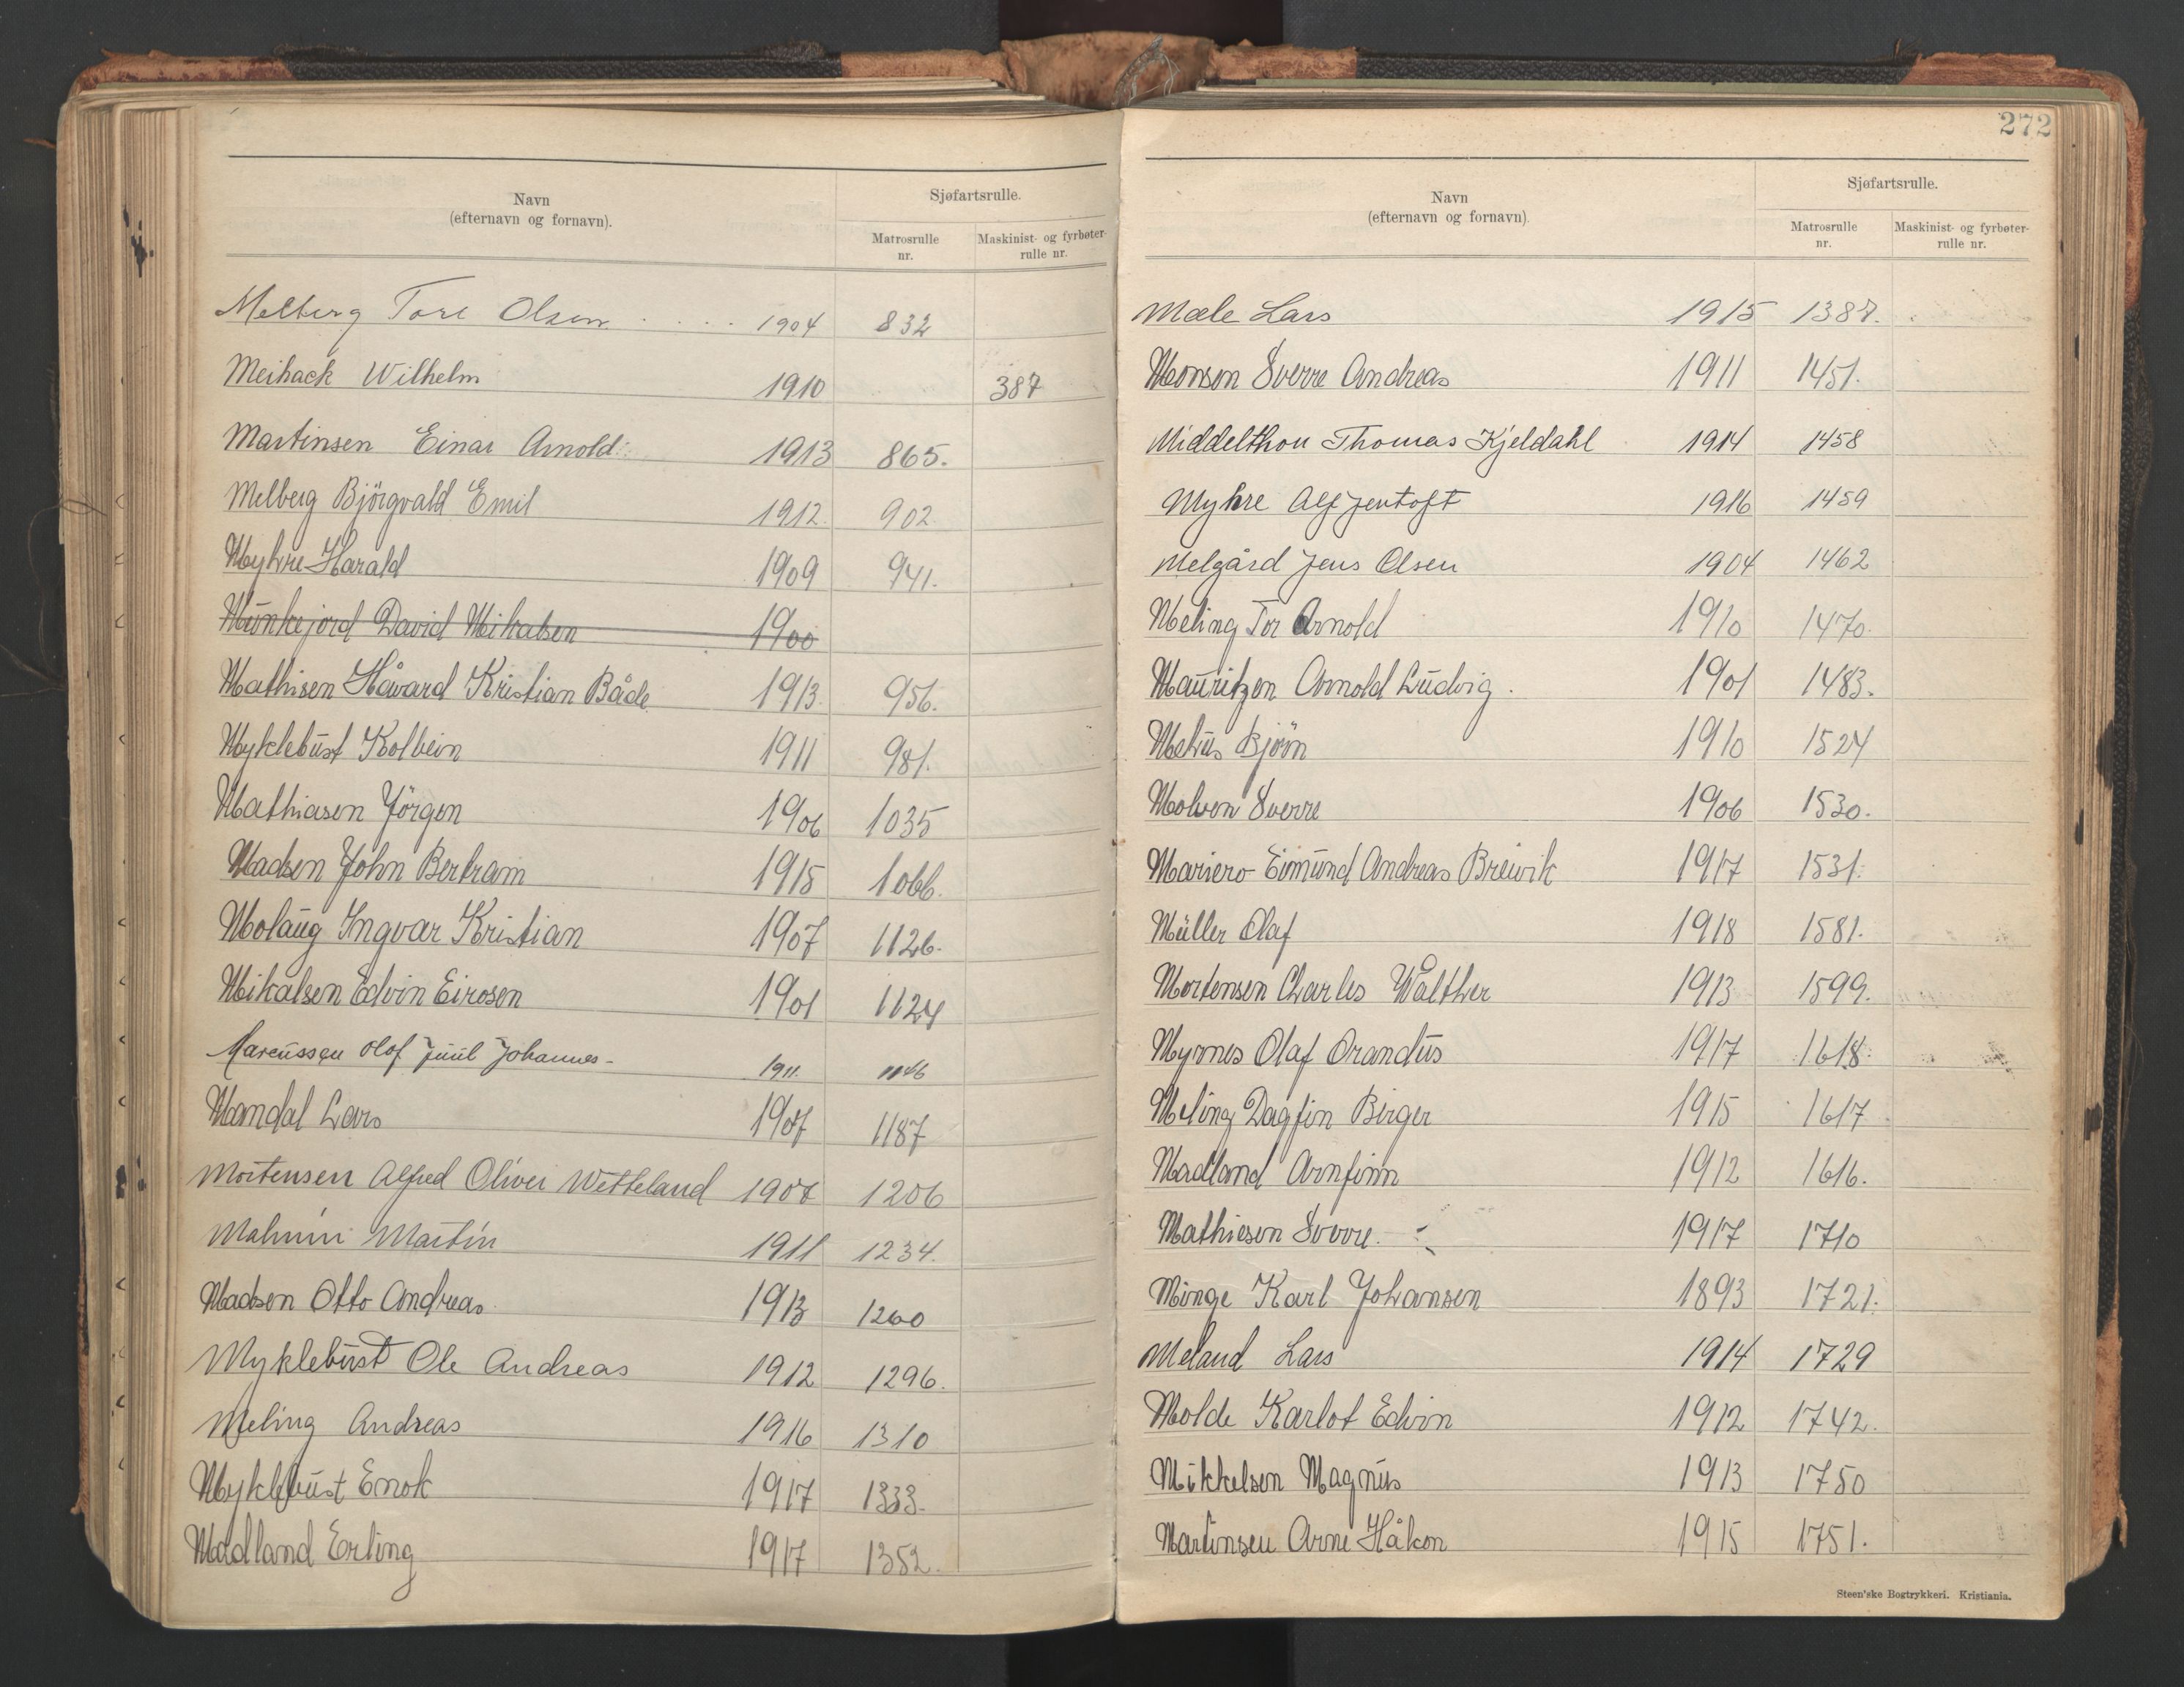 Navn
(efternavn og fornavn).
Sjøfartsrulle.
Matrosrulle nr.
Maskinist- og fyrbøter-rulle nr.
Melberg Tore Olsen . . . . 1904 832
Meihack Wilhelm 1910 387
Martinsen Einar Arnold 1913 865.
Melberg Björgvald Emil 1912 902
Myhre Harald 1909 941.
Munkejord David Mikalsen 1900
Mathisen Håvard Kristian Både 1913 956.
Myklebust Kolbein 1911 981.
Mathiasen Jörgen 1906 1035
Madsen John Bertram 1915 1066.
Molaug Ingvar Kristian 1907 1126.
Mikalsen Edvin Eirosen 1901 1124
Marcussen Olof Juul Johannes - 1911. 1146
Mandal Lars 1907 1187
Mortensen Alfred Oliver Wetteland 1907 1206
Malmin Martin 1911 1234.
Madsen Otto Andreas 1913 1260
Myklebust Ole Andreas 1912 1296.
Meling Andreas 1916 1310
Myklebust Enok 1917 1333.
Madland Erling 1917 1352.
272
Navn
(efternavn og fornavn)
Sjøfartsrulle.
Matrosrulle nr.
Maskinist- og fyrbøter-rulle nr.
Mæle Lars 1915 1387.
Monsen Sverre Andreas 1911 1451.
Middelthon Thomas Kjeldahl 1914 1458
Myhre Alf Jentoft 1916 1459
Melgård Jens Olsen 1904 1462
Meling Tor Arnold 1910 1470.
Mauritzen Arnold Ludvig. 1901 1483.
Mehus Bjørn 1910 1524
Molven Sverre 1906 1530.
Mariero Eimund Andreas Breivik 1917 1531.
Müller Olaf 1918 1581.
Mortensen Charles Walther 1913 1599.
Myrnes Olaf Orandus 1917 1618.
Meling Dagfin Birger 1915 1617
Madland Arnfinn 1912 1616.
Mathiesen Sverre. 1917 1710
Minge Karl Johansen 1893 1721.
Meland Lars 1914 1729
Molde Karlot Edvin 1912 1742.
Mikkelsen Magnus 1913 1750
Martinsen Arne Håkon 1915 1751.
Steen'ske Bogtrykkeri. Kristiania.